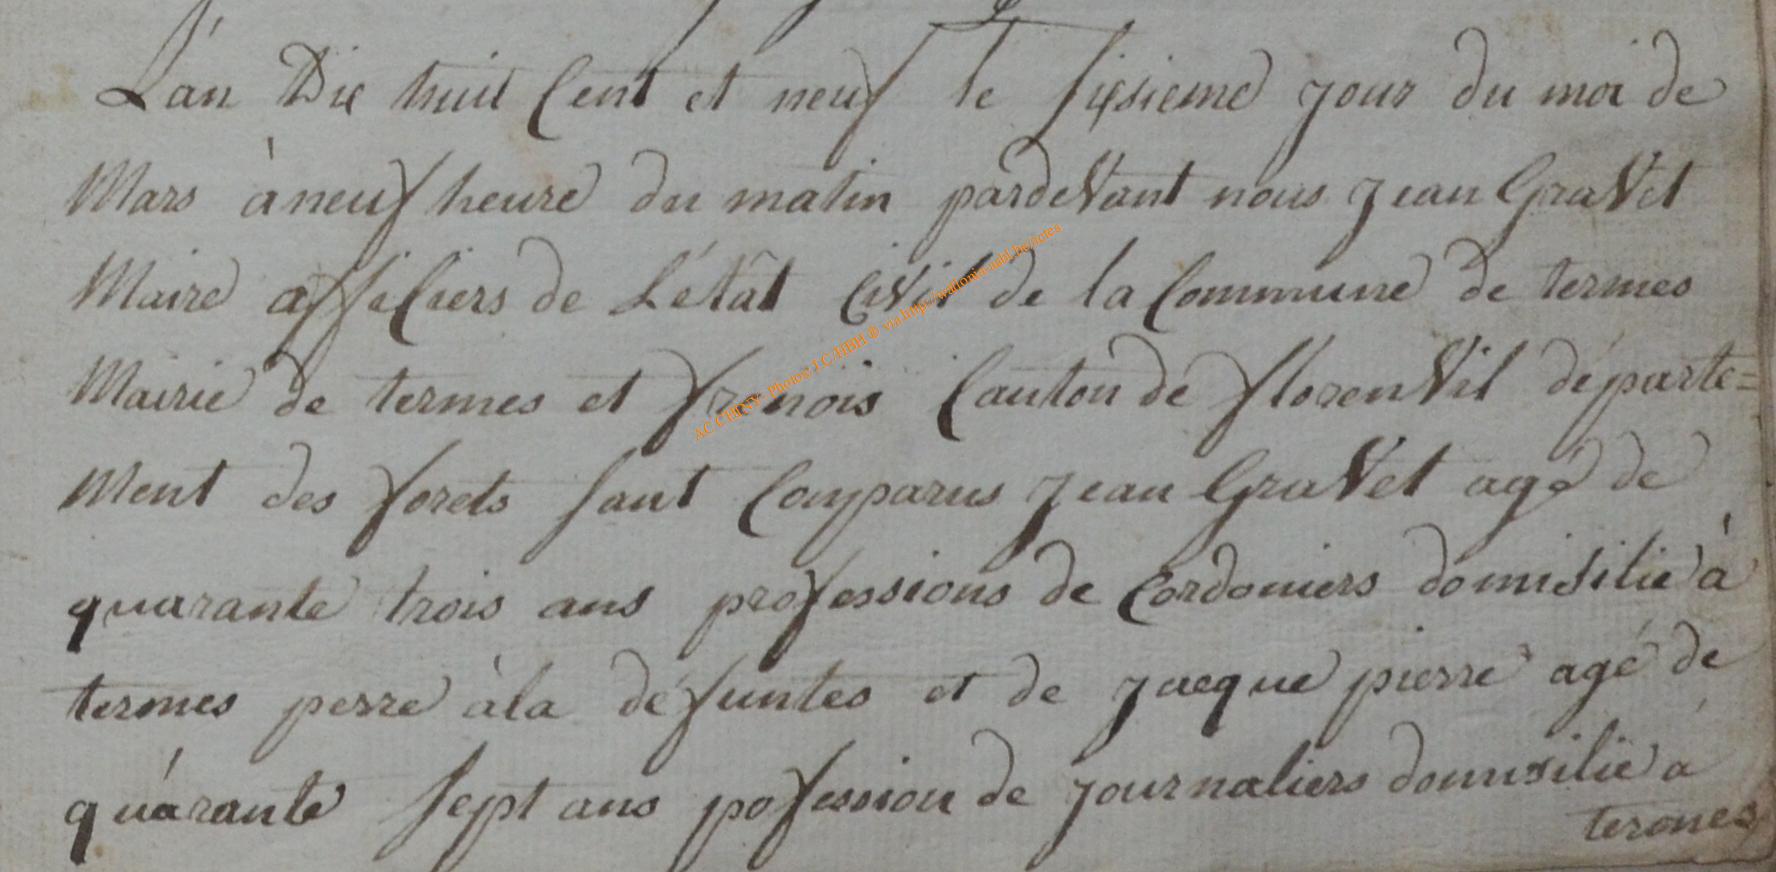 L'an Dix huit Cent et neuf le sixsieme jour du moi de
Mars à neuf heure du matin pardeVant nous Jean GraVet
Maire affiliers de L'état CiVil de la Commune de termes
Mairie de termes et frenois Canton de florenVil départe=
Ment des forets sont Comparus Jean GraVet agé de
quarante trois ans professions de Cordoniers domisilié à
termes perre à la défuntes et de Jacque pierre agé de
quarante sept ans pofession de journaliers domisilié a
termes
AC CHINY- Photos: J.C.HBH © via http://wallonia-asbl.be/actes